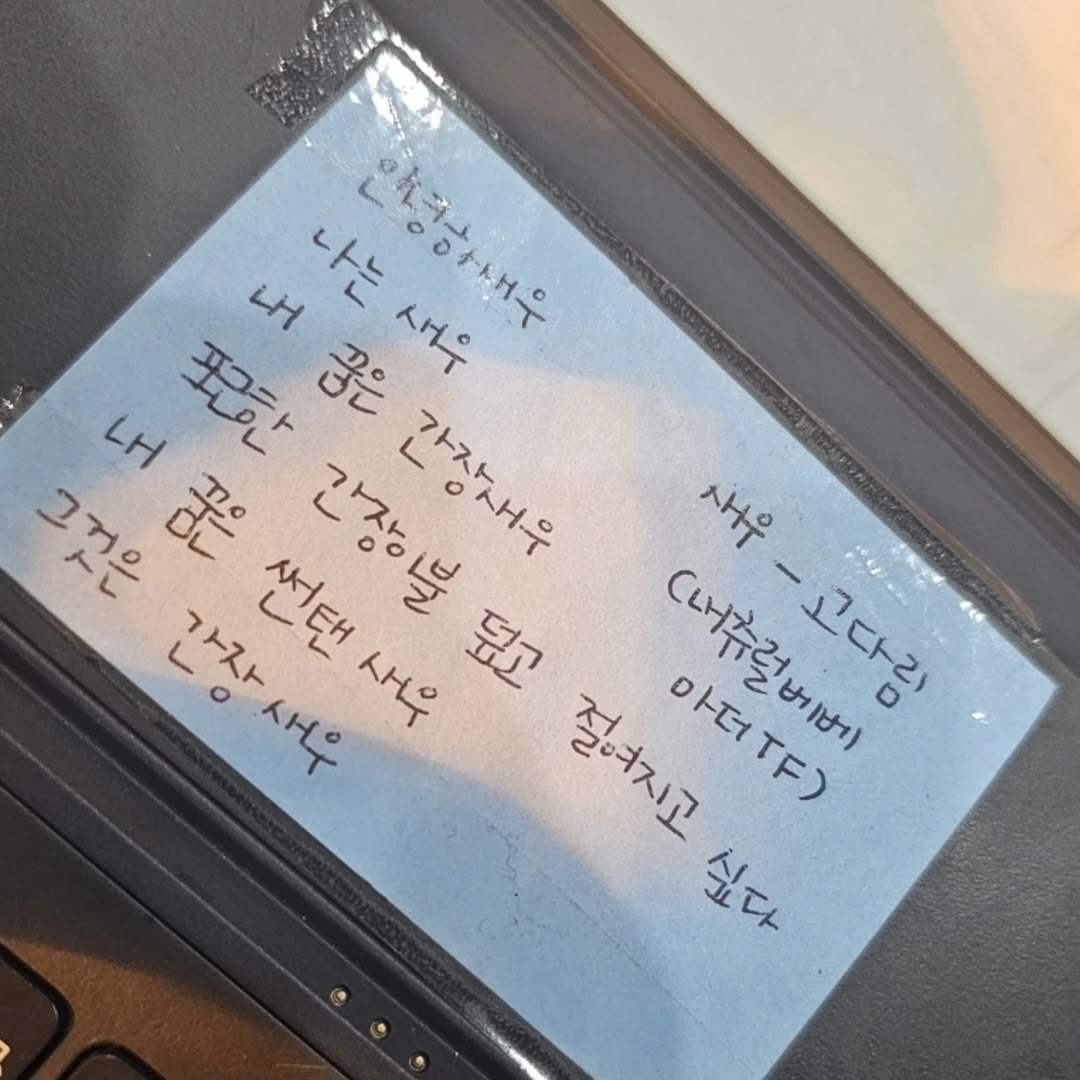 안녕하새우
나는 새우
내 꿈은 간장새우
포근한 간장이불 덮고 절여지고 싶다
내 꿈은 썬탠 새우
그것은 간장새우
새우 - 고다림
(내츄럴베베
아더TF)